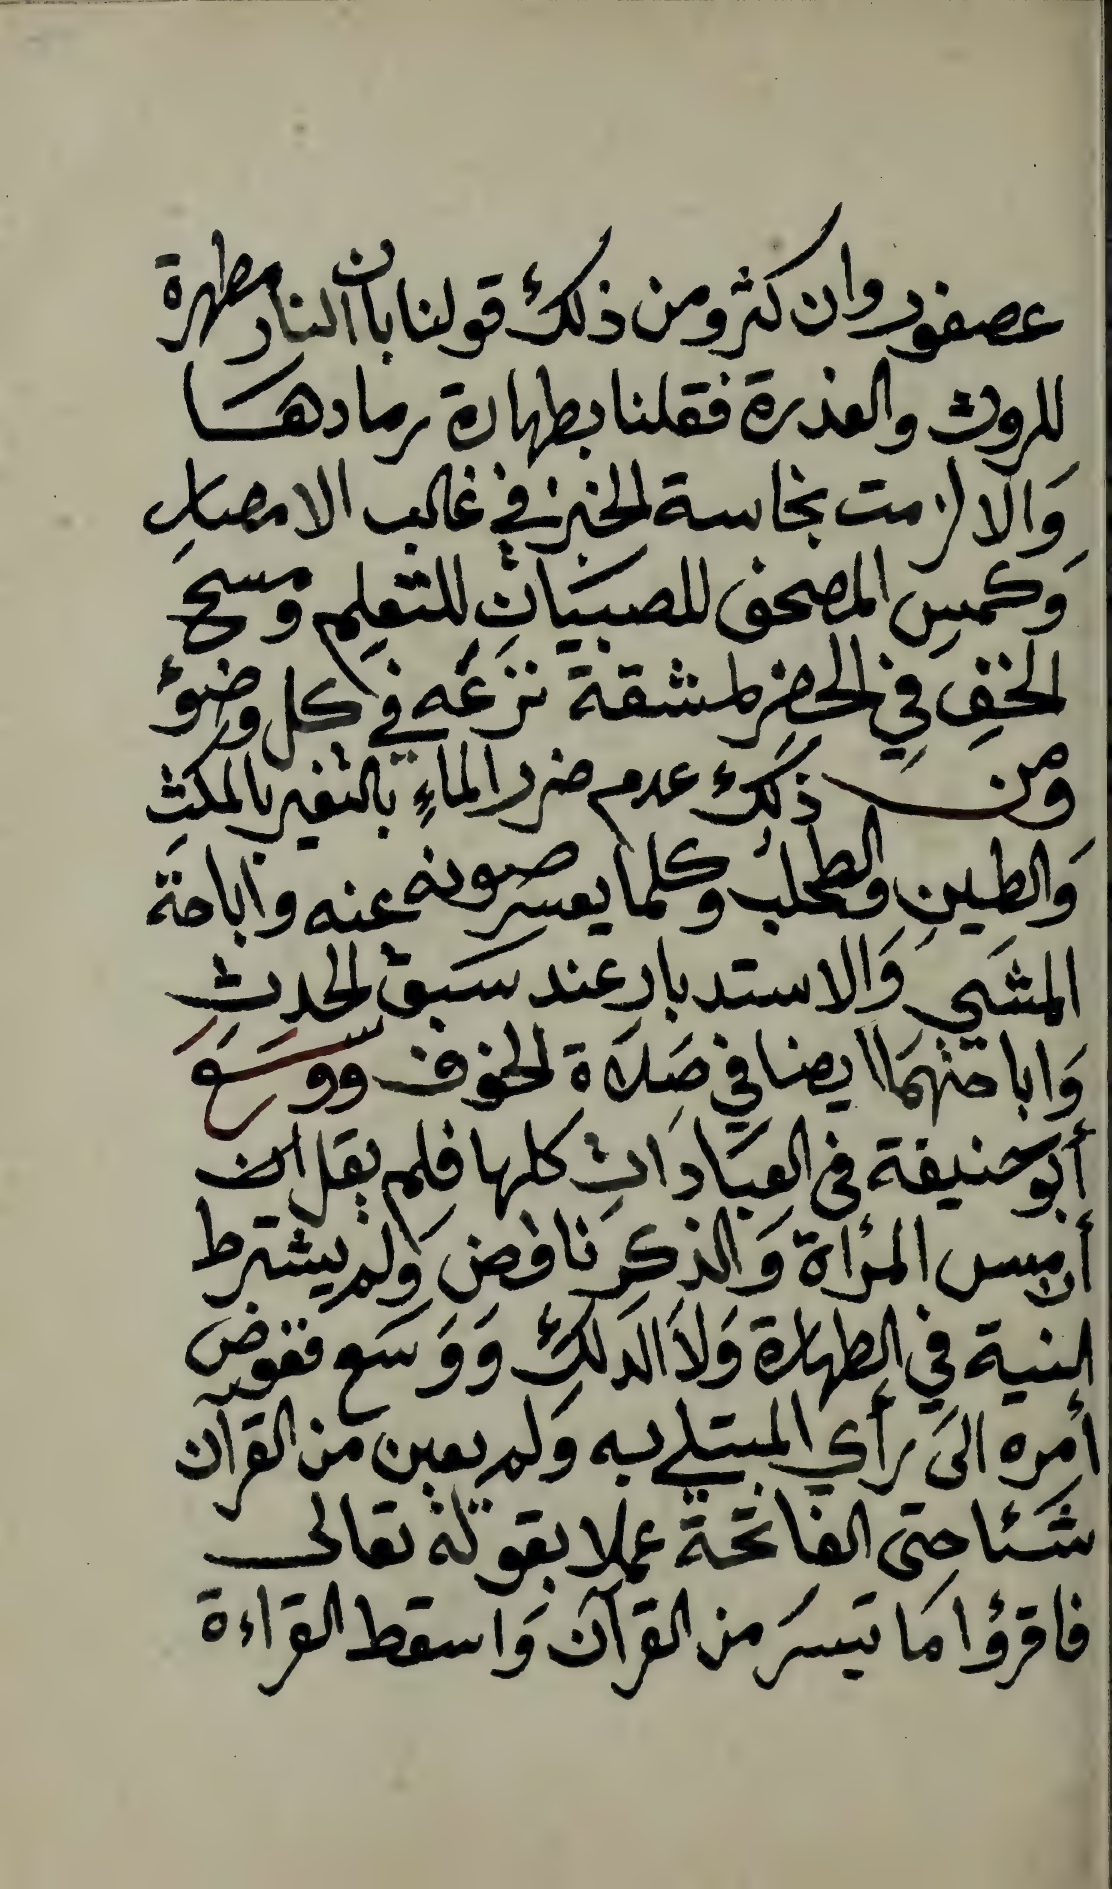 عصفور وان كثر ومن ذلك قولنا بان النار مطهرة
للروث والعذرة فقلنا بطهارة رمادها
وَالا لزمت نجاسة الخبز في غالب الامصارِ
وَكمسِ المصحف للصبيَانِ للتعلم ومسح
الخفِ فيِ الحضرِ لمشقة نزعَه في كل وضوءٔ
ومن ذلك عدم ضرر الماءِ بالتغير بالمكثِ
وَالطينِ والطحلب وكلما يعسر صونه عنه واباحة
المشَي وَالاستدبار عند سَبق الحدثِ
وَاباحتهمَا ايضا في صَلاَة الخوف ووَسَّعَ
أبو حنيفة في العبَادَاتِ كلها فلم يقل ان
أن مس المرأة وَالذكرِ ناقض وَلم يشترط
النية في الطهارة وَلاَ الدَلك وَوَسَع ففوض
أمره الىَ رَأي المبتلى به وَلم يعين من القرآن
شَئا حتى الفاتحة عملا بقوله تعالى
فاقرؤا مَا تيسرَ من القرآن وَاسقط القراءة